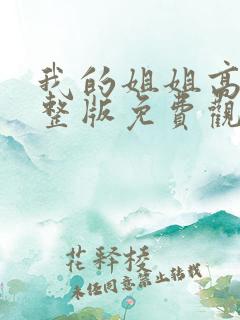 我的姐姐高
整版免費觀
花释棱
未经同意禁止转载